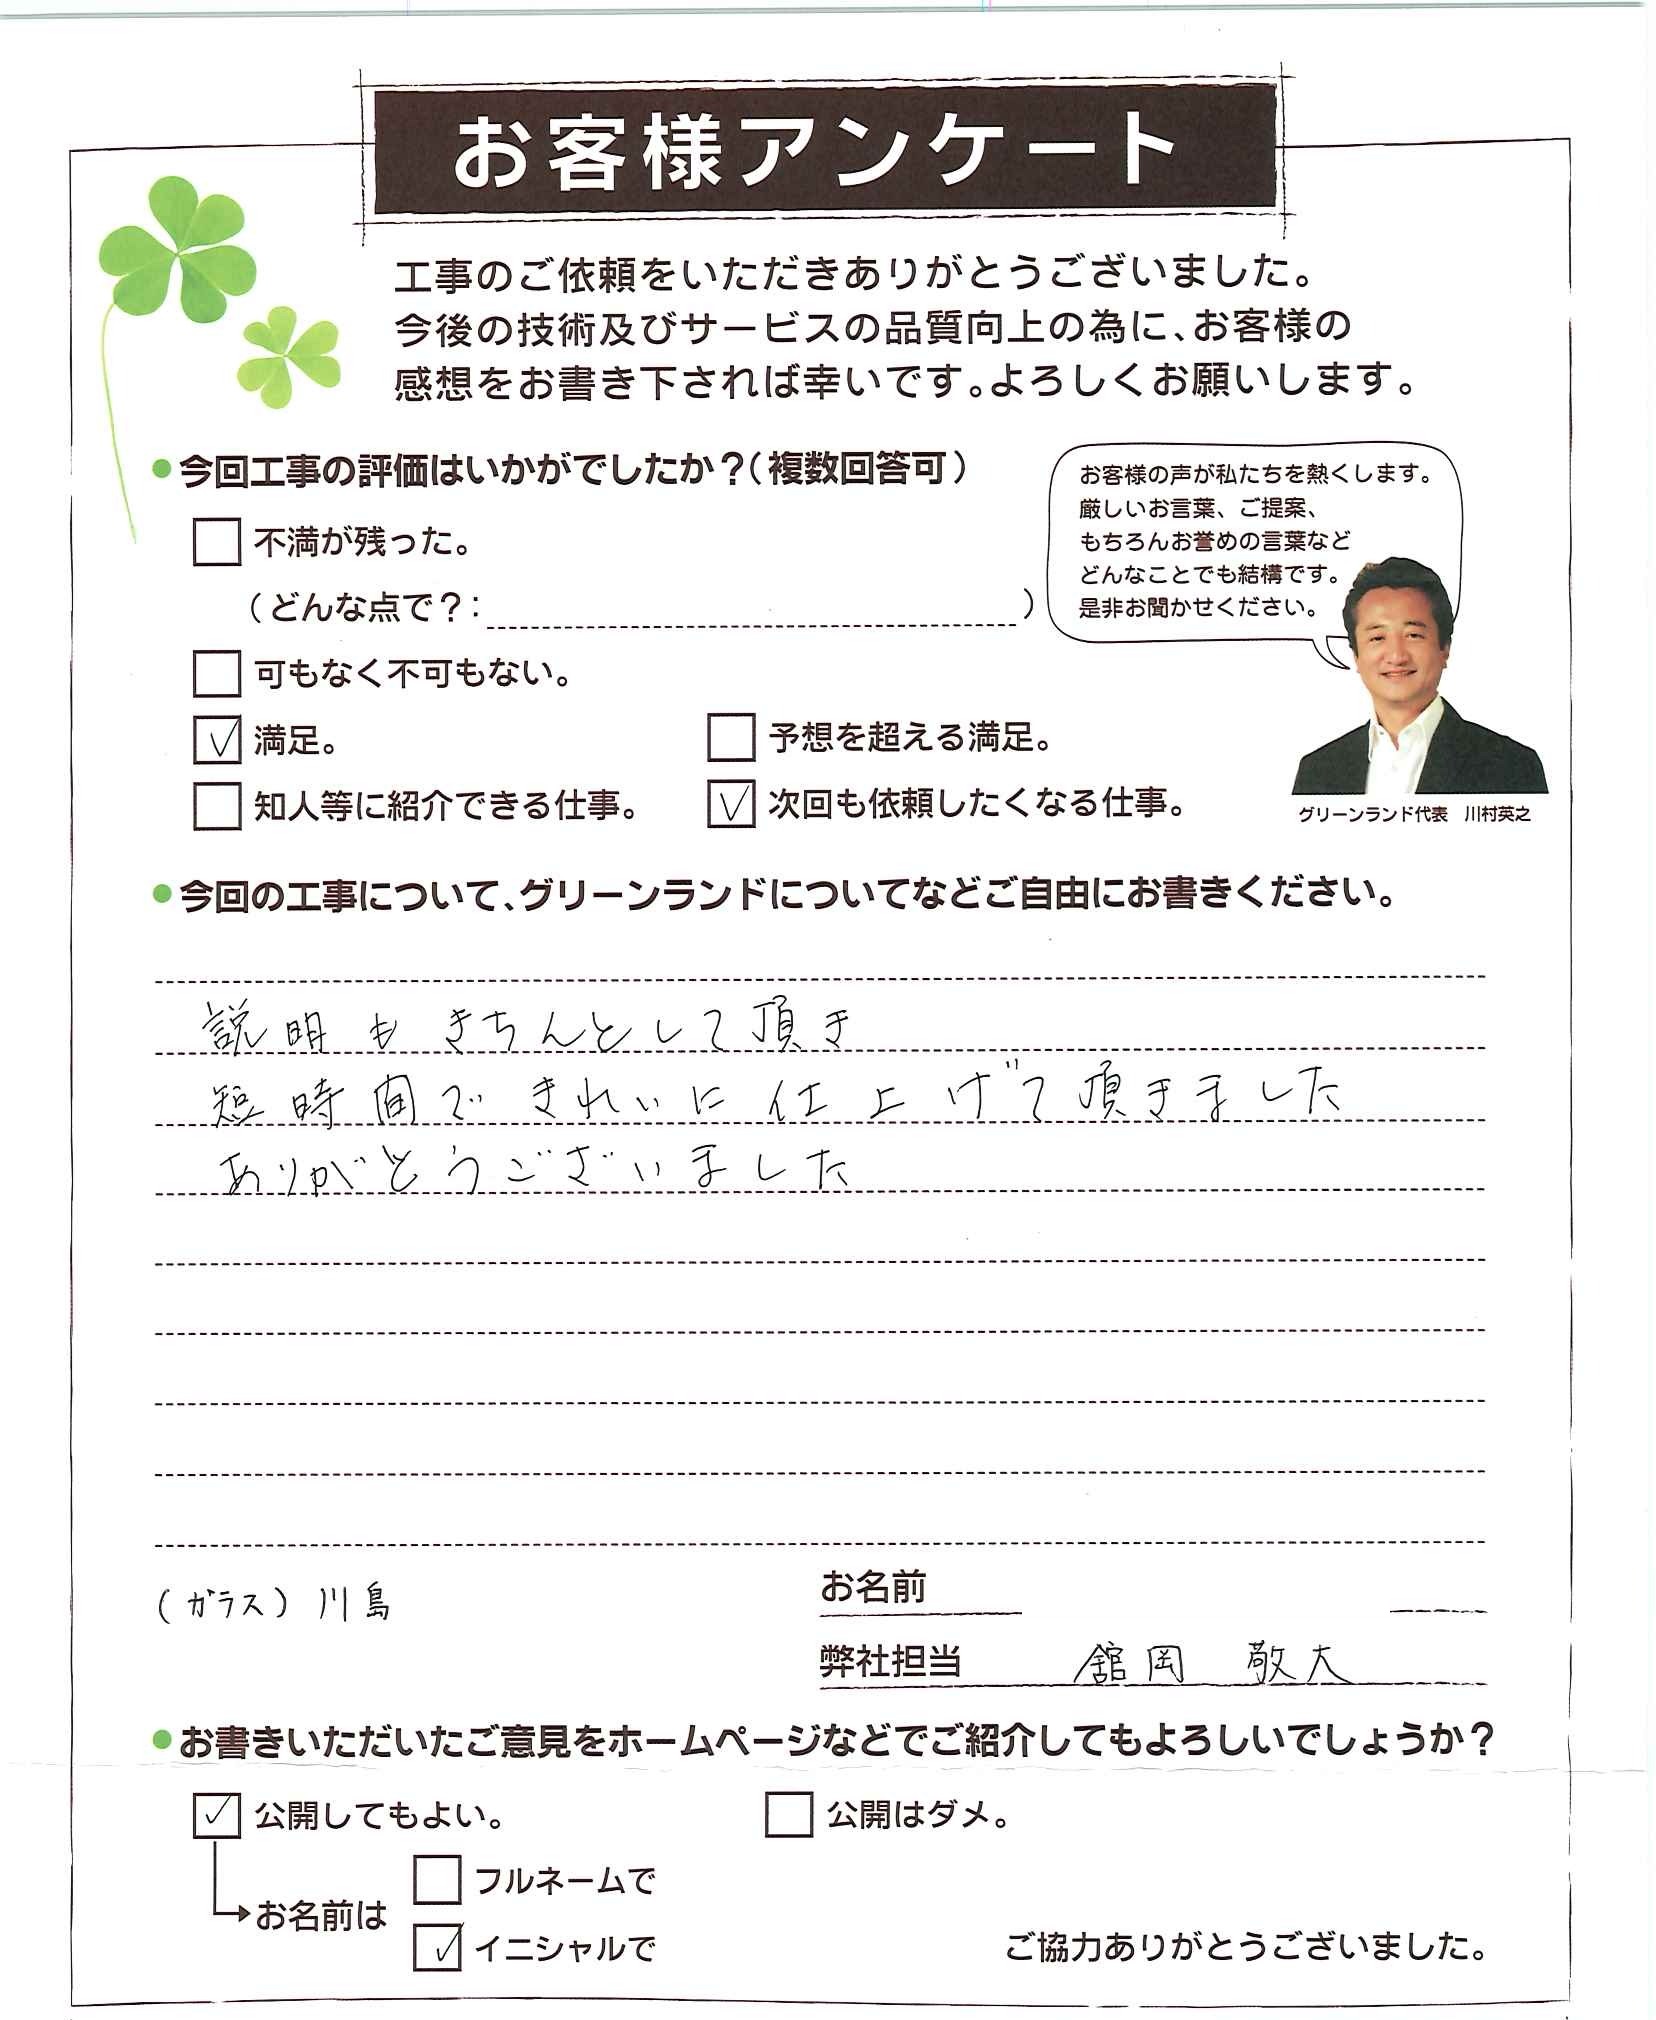 お客様アンケート
工事のご依頼をいただきありがとうございました。
今後の技術及びサービスの品質向上の為に、お客様の
感想をお書き下されれば幸いです。よろしくお願いします。
●今回工事の評価はいかがでしたか？（複数回答可）
不満が残った。
（どんな点で？：　）
可もなく不可もない。
満足。
予想を超える満足。
知人等に紹介できる仕事。
次回も依頼したくなる仕事。
お客様の声が私たちを熱くします。
厳しいお言葉、ご提案、
もちろんお誉めの言葉など
どんなことでも結構です。
是非お聞かせください。
グリーンランド代表　川村英之
●今回の工事について、グリーンランドについてなどご自由にお書きください。
説明もきちんとして頂き
短時間できれいに仕上げて頂きました
ありがとうございました
(ガラス) 川島
お名前
弊社担当　舘岡　敬大
●お書きいただいたご意見をホームページなどでご紹介してもよろしいでしょうか？
公開してもよい。
公開はダメ。
お名前は
フルネームで
イニシャルで
ご協力ありがとうございました。